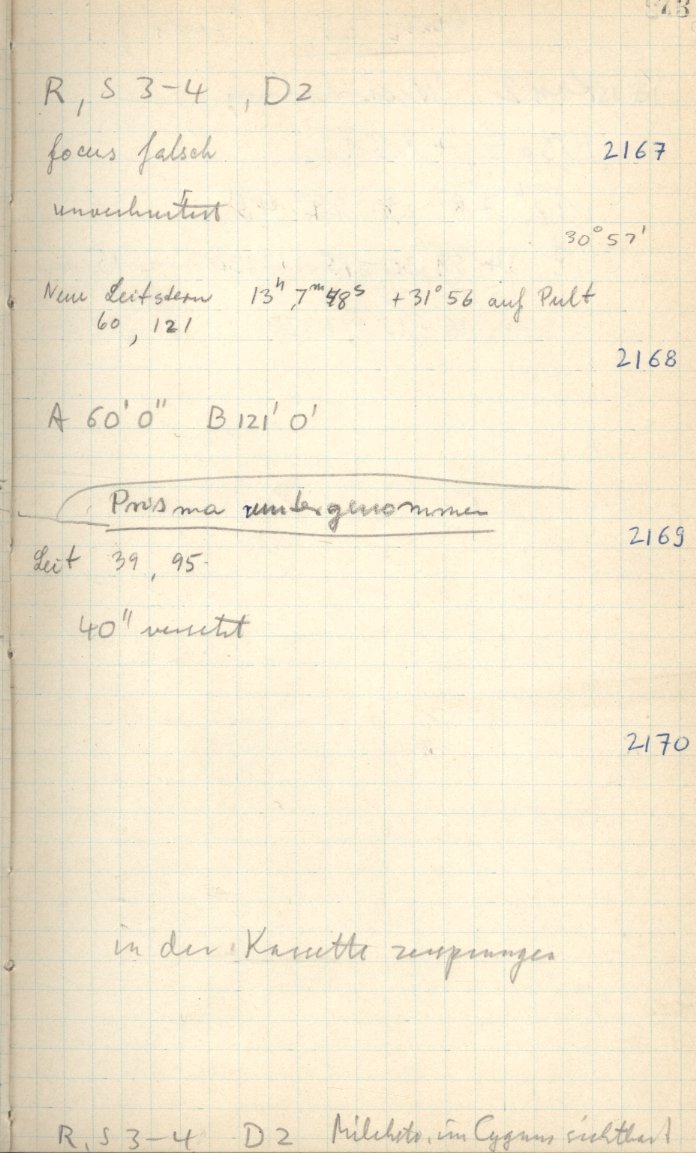 R, S 3-4 , D2
focus falsch
2167
30° 57'
Neuer Leitstern 13ʰ 7ᵐ 48ˢ +31° 56 auf Pult
60 , 121
2168
A 60' 0" B 121' 0'
Prisma runtergenommen
2169
Leit 39 , 95.
40" versetzt
2170
in der Kassette zersprungen
R, S 3-4 D2 Milchstr. im Cygnus sichtbar